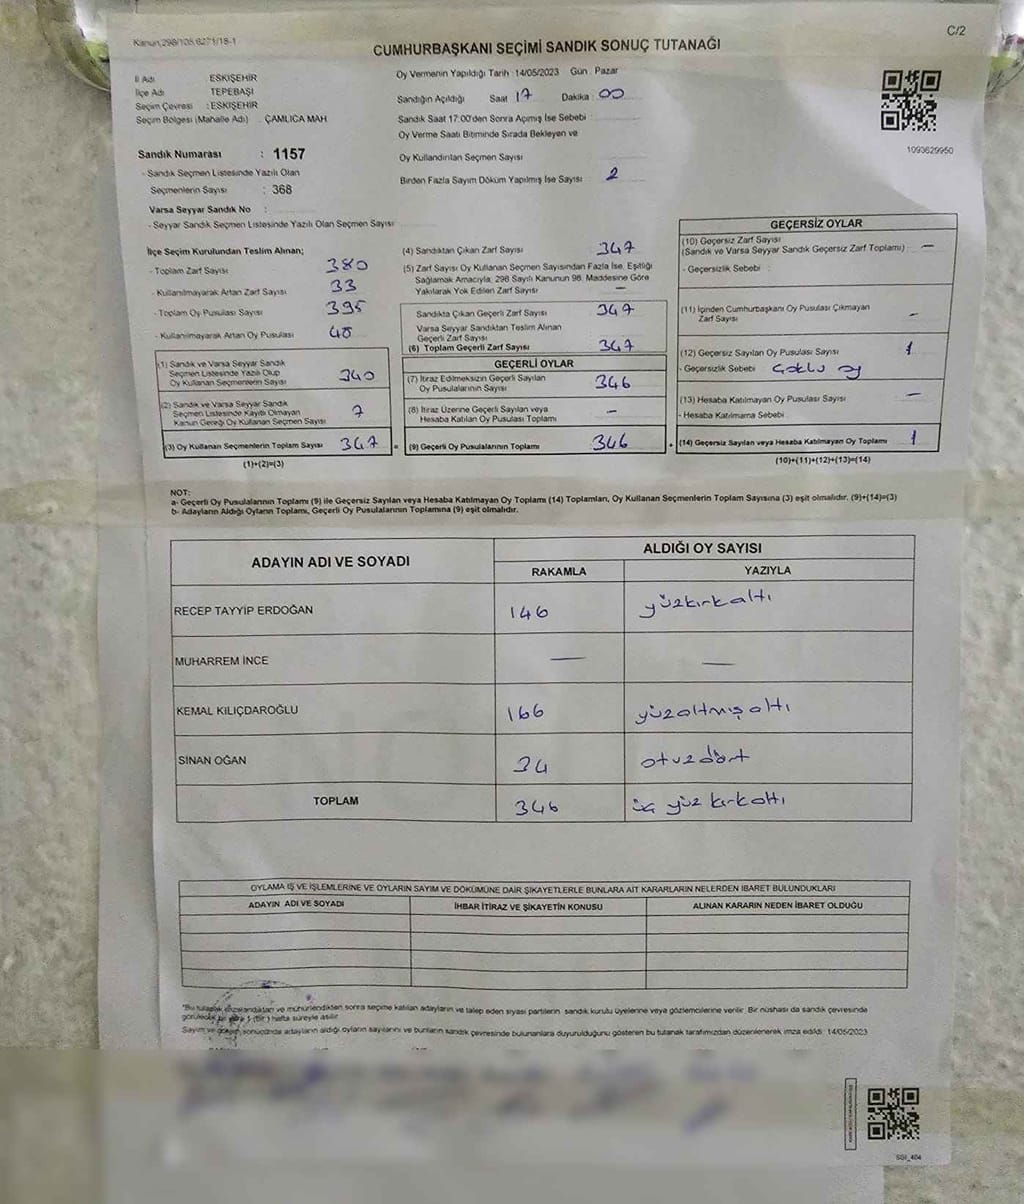 C/2
Kanun,298/105,6271/18-1
CUMHURBAŞKANI SEÇİMİ SANDIK SONUÇ TUTANAĞI
İl Adı : ESKİŞEHİR
İlçe Adı : TEPEBAŞI
Seçim Çevresi : ESKİŞEHİR
Seçim Bölgesi (Mahalle Adı) : ÇAMLICA MAH
Sandık Numarası : 1157
- Sandık Seçmen Listesinde Yazılı Olan
Seçmenlerin Sayısı : 368
Varsa Seyyar Sandık No :
- Seyyar Sandık Seçmen Listesinde Yazılı Olan Seçmen Sayısı
Oy Vermenin Yapıldığı Tarih :14/05/2023 Gün : Pazar
Sandığın Açıldığı Saat 17 Dakika : 00
Sandık Saat 17:00'den Sonra Açımış İse Sebebi :
Oy Verme Saati Bitiminde Sırada Bekleyen ve
Oy Kullandırılan Seçmen Sayısı
Birden Fazla Sayım Döküm Yapılmış İse Sayısı 2
1093629950
İlçe Seçim Kurulundan Teslim Alınan;
- Toplam Zarf Sayısı 380
- Kullanılmayarak Artan Zarf Sayısı 33
- Toplam Oy Pusulası Sayısı 395
- Kullanılmayarak Artan Oy Pusulası 48
(1) Sandık ve Varsa Seyyar Sandık
Seçmen Listesinde Yazılı Olup
Oy Kullanan Seçmenlerin Sayısı 340
(2) Sandık ve Varsa Seyyar Sandık
Seçmen Listesinde Kayıtlı Olmayan
Kanun Gereği Oy Kullanan Seçmen Sayısı 7
(3) Oy Kullanan Seçmenlerin Toplam Sayısı 347 =
(1)+(2)=(3)
(4) Sandıktan Çıkan Zarf Sayısı 347
(5) Zarf Sayısı Oy Kullanan Seçmen Sayısından Fazla İse, Eşitliği
Sağlamak Amacıyla, 298 Sayılı Kanunun 98. Maddesine Göre
Yakılarak Yok Edilen Zarf Sayısı —
Sandıkta Çıkan Geçerli Zarf Sayısı 347
Varsa Seyyar Sandıktan Teslim Alınan
Geçerli Zarf Sayısı
(6) Toplam Geçerli Zarf Sayısı 347
GEÇERLİ OYLAR
(7) İtiraz Edilmeksizin Geçerli Sayılan
Oy Pusulalarının Sayısı 346
(8) İtiraz Üzerine Geçerli Sayılan veya
Hesaba Katılan Oy Pusulası Toplamı —
(9) Geçerli Oy Pusulalarının Toplamı 346 +
GEÇERSİZ OYLAR
(10) Geçersiz Zarf Sayısı
(Sandık ve Varsa Seyyar Sandık Geçersiz Zarf Toplamı) : —
- Geçersizlik Sebebi :
(11) İçinden Cumhurbaşkanı Oy Pusulası Çıkmayan
Zarf Sayısı —
(12) Geçersiz Sayılan Oy Pusulası Sayısı 1
- Geçersizlik Sebebi Çoklu oy
(13) Hesaba Katılmayan Oy Pusulası Sayısı —
- Hesaba Katılmama Sebebi
(14) Geçersiz Sayılan veya Hesaba Katılmayan Oy Toplamı 1
(10)+(11)+(12)+(13)=(14)
NOT:
a- Geçerli Oy Pusulalarının Toplamı (9) ile Geçersiz Sayılan veya Hesaba Katılmayan Oy Toplamı (14) Toplamları, Oy Kullanan Seçmenlerin Toplam Sayısına (3) eşit olmalıdır. (9)+(14)=(3)
b- Adayların Aldığı Oyların Toplamı, Geçerli Oy Pusulalarının Toplamına (9) eşit olmalıdır.
ADAYIN ADI VE SOYADI ALDIĞI OY SAYISI
RAKAMLA YAZIYLA
RECEP TAYYİP ERDOĞAN 146 yüzkırkaltı
MUHARREM İNCE — —
KEMAL KILIÇDAROĞLU 166 yüzaltmışaltı
SİNAN OĞAN 34 otuzdört
TOPLAM 346 üç yüz kırkaltı
OYLAMA İŞ VE İŞLEMLERİNE VE OYLARIN SAYIM VE DÖKÜMÜNE DAİR ŞİKAYETLERLE BUNLARA AİT KARARLARIN NELERDEN İBARET BULUNDUKLARI
ADAYIN ADI VE SOYADI İHBAR İTİRAZ VE ŞİKAYETİN KONUSU ALINAN KARARIN NEDEN İBARET OLDUĞU
*Bu tutanak imzalandıktan ve mühürlendikten sonra seçime katılan adayların ve talep eden siyasi partilerin sandık kurulu üyelerine veya gözlemcilerine verilir. Bir nüshası da sandık çevresinde
görülecek bir yere 1 (bir) hafta süreyle asılır.
Sayım ve döküm sonucunda adayların aldığı oyların sayılarını ve bunların sandık çevresinde bulunanlara duyurulduğunu gösteren bu tutanak tarafımızdan düzenlenerek imza edildi. 14/05/2023
SGİ_404